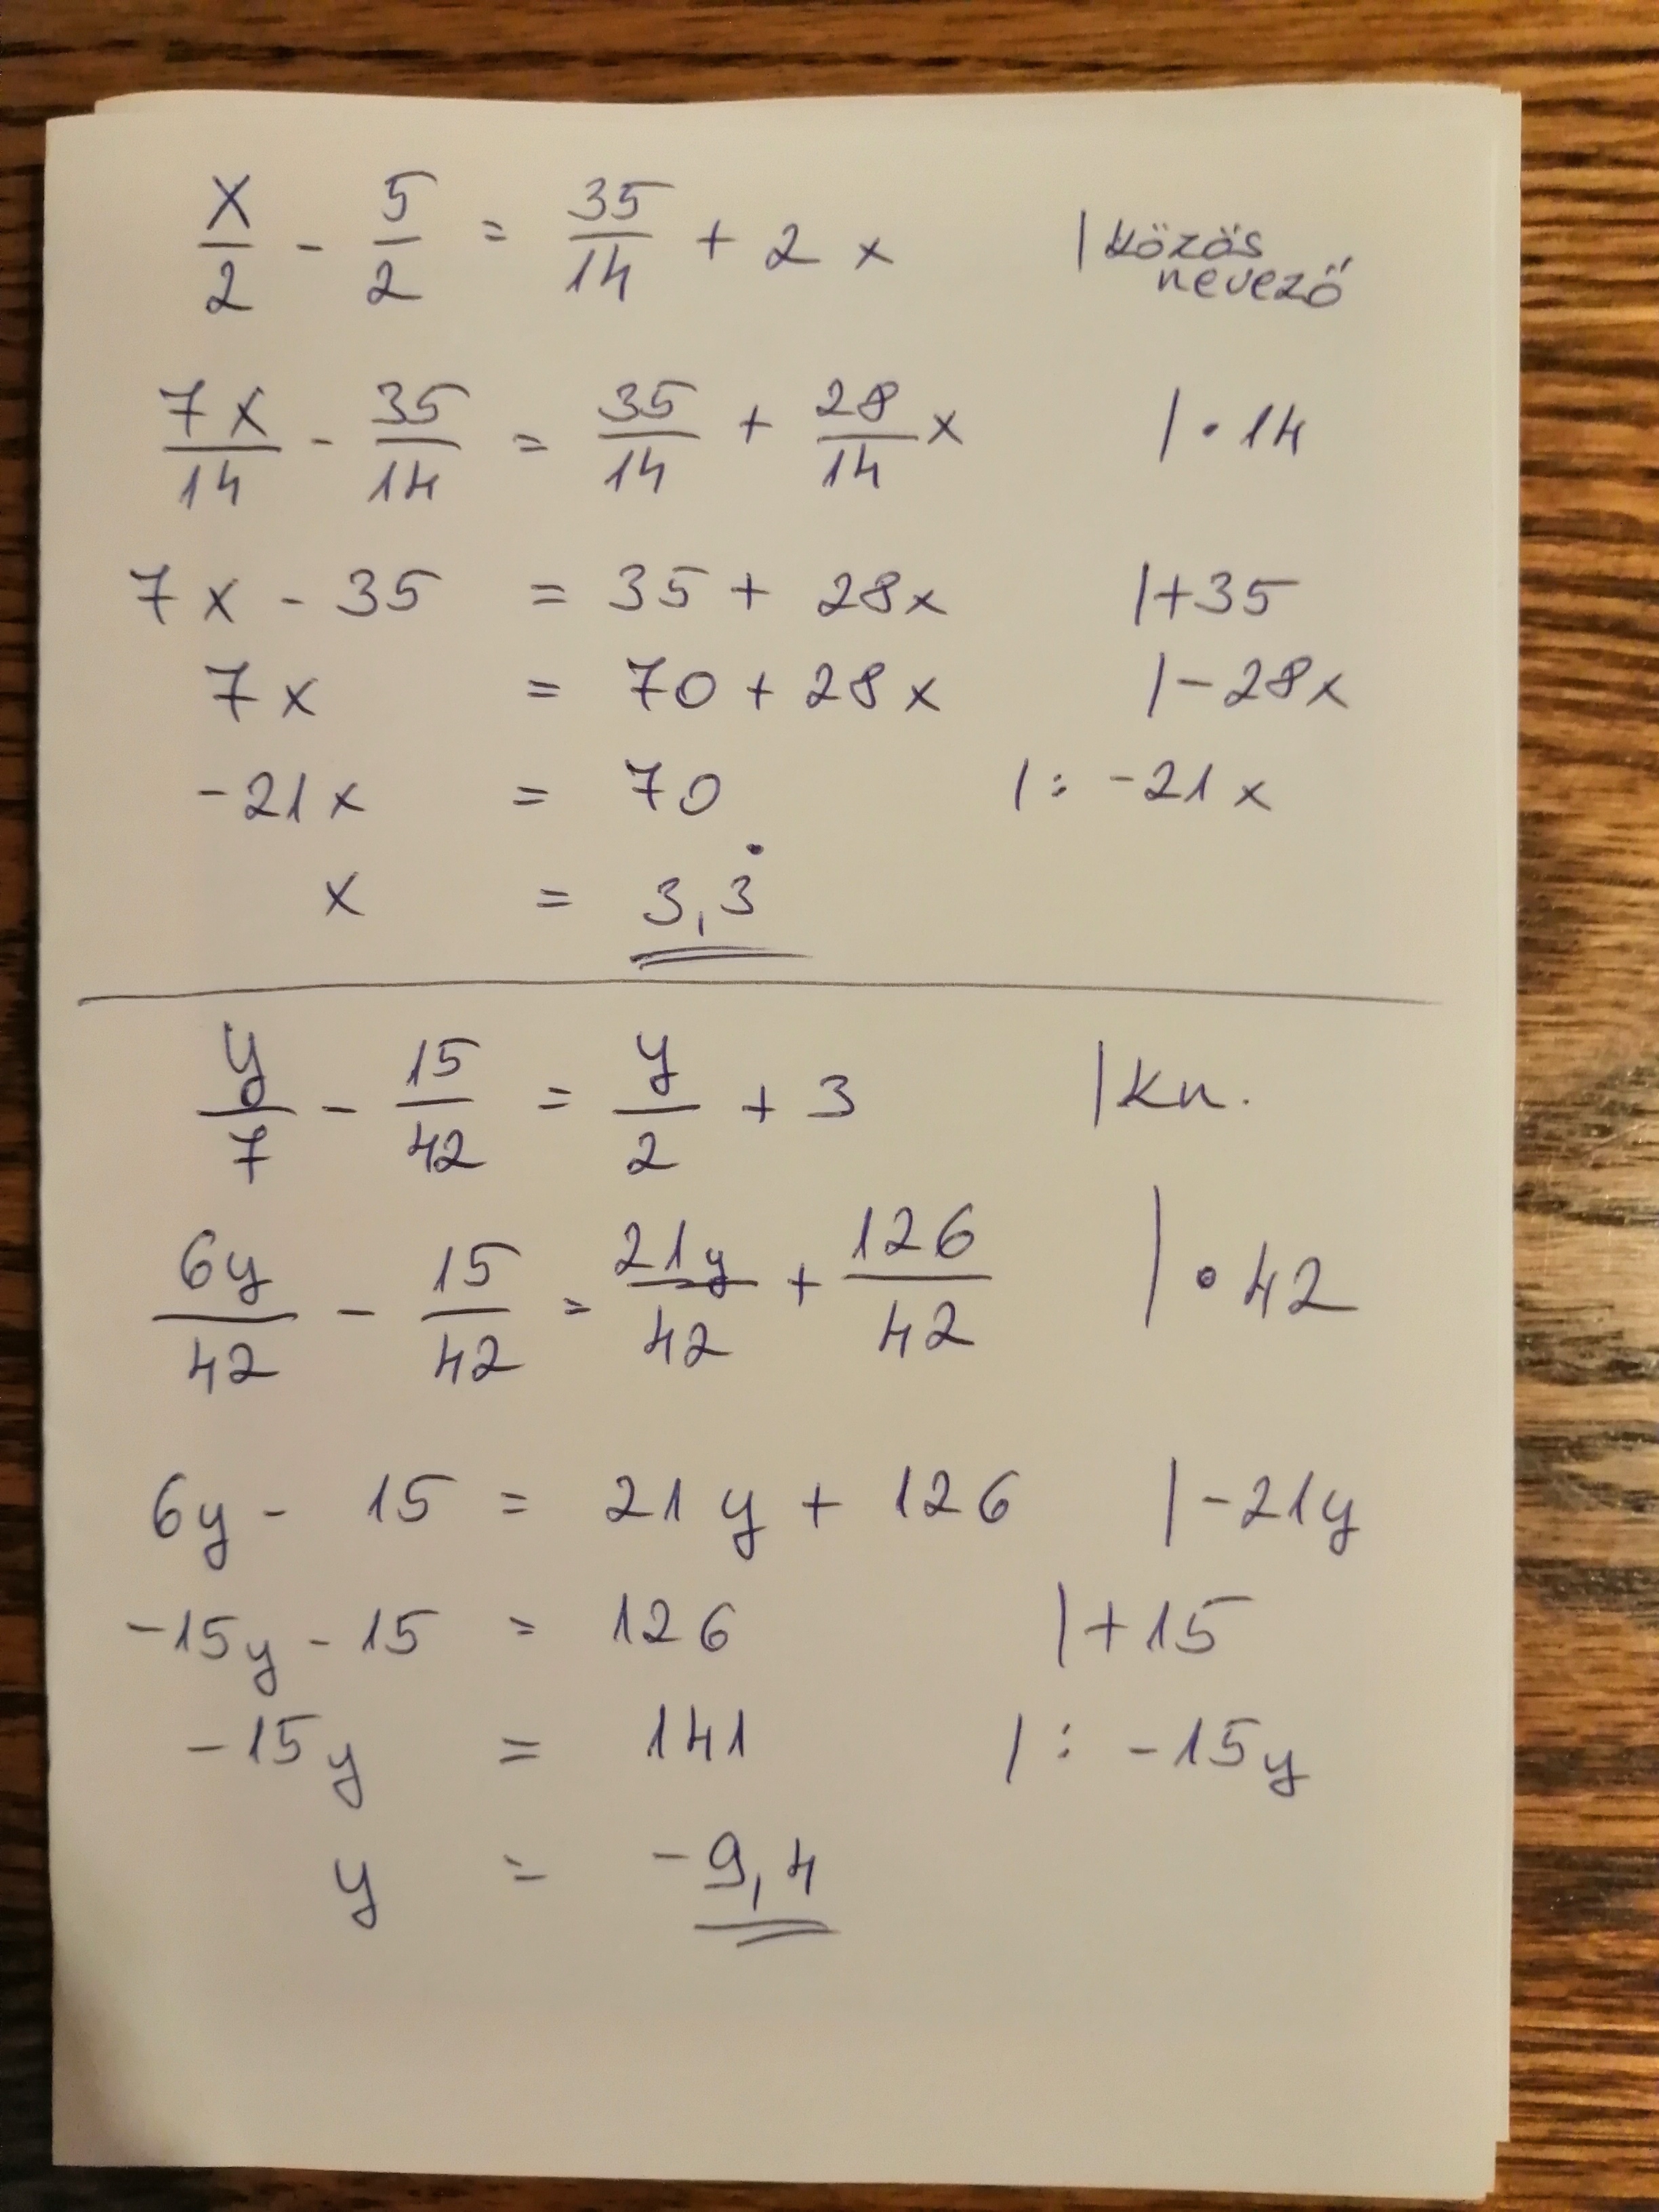 x/2 - 5/2 = 35/14 + 2x | közös nevező
7x/14 - 35/14 = 35/14 + 28/14 x | · 14
7x - 35 = 35 + 28x | +35
7x = 70 + 28x | -28x
-21x = 70 | : -21x
x = 3,3̇
y/7 - 15/42 = y/2 + 3 | kn.
6y/42 - 15/42 = 21y/42 + 126/42 | · 42
6y - 15 = 21y + 126 | -21y
-15y - 15 = 126 | +15
-15y = 141 | : -15y
y = -9,4